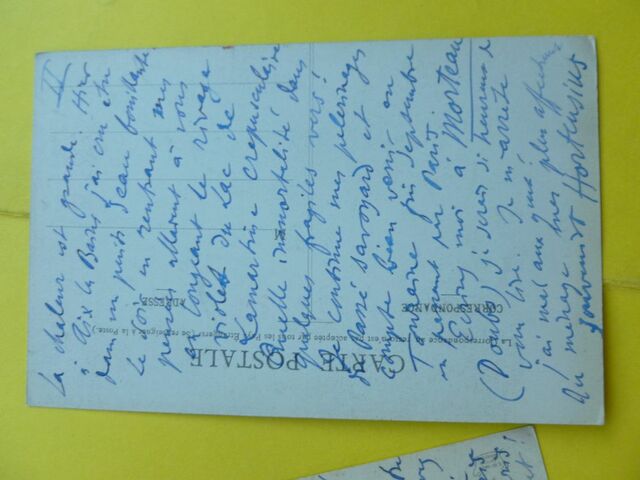 II
La chaleur est grande. Hier
à Aix les Bains j'ai cru être
dans un puits d'eau bouillante.
Le soir en rentrant mes
pensées allèrent à vous
en longeant le rivage
violet du Lac de
Lamartine crépusculaire
Quelle immortalité dans
quelques fragiles vers!
Je continue mes pèlerinages
de passé savoyard et
compte bien venir en
Touraine fin Septembre
en passant par Paris.
Ecrivez moi à Morteau
(Doubs) je serai si heureux de
vous lire. Je m'arrête
j'ai mal aux yeux
mes plus affectueux
souvenirs Hortensius
CARTE POSTALE
La correspondance au verso n'est pas acceptée par tous les Pays Étrangers (Se renseigner à la Poste.)
CORRESPONDANCE
ADRESSE
M